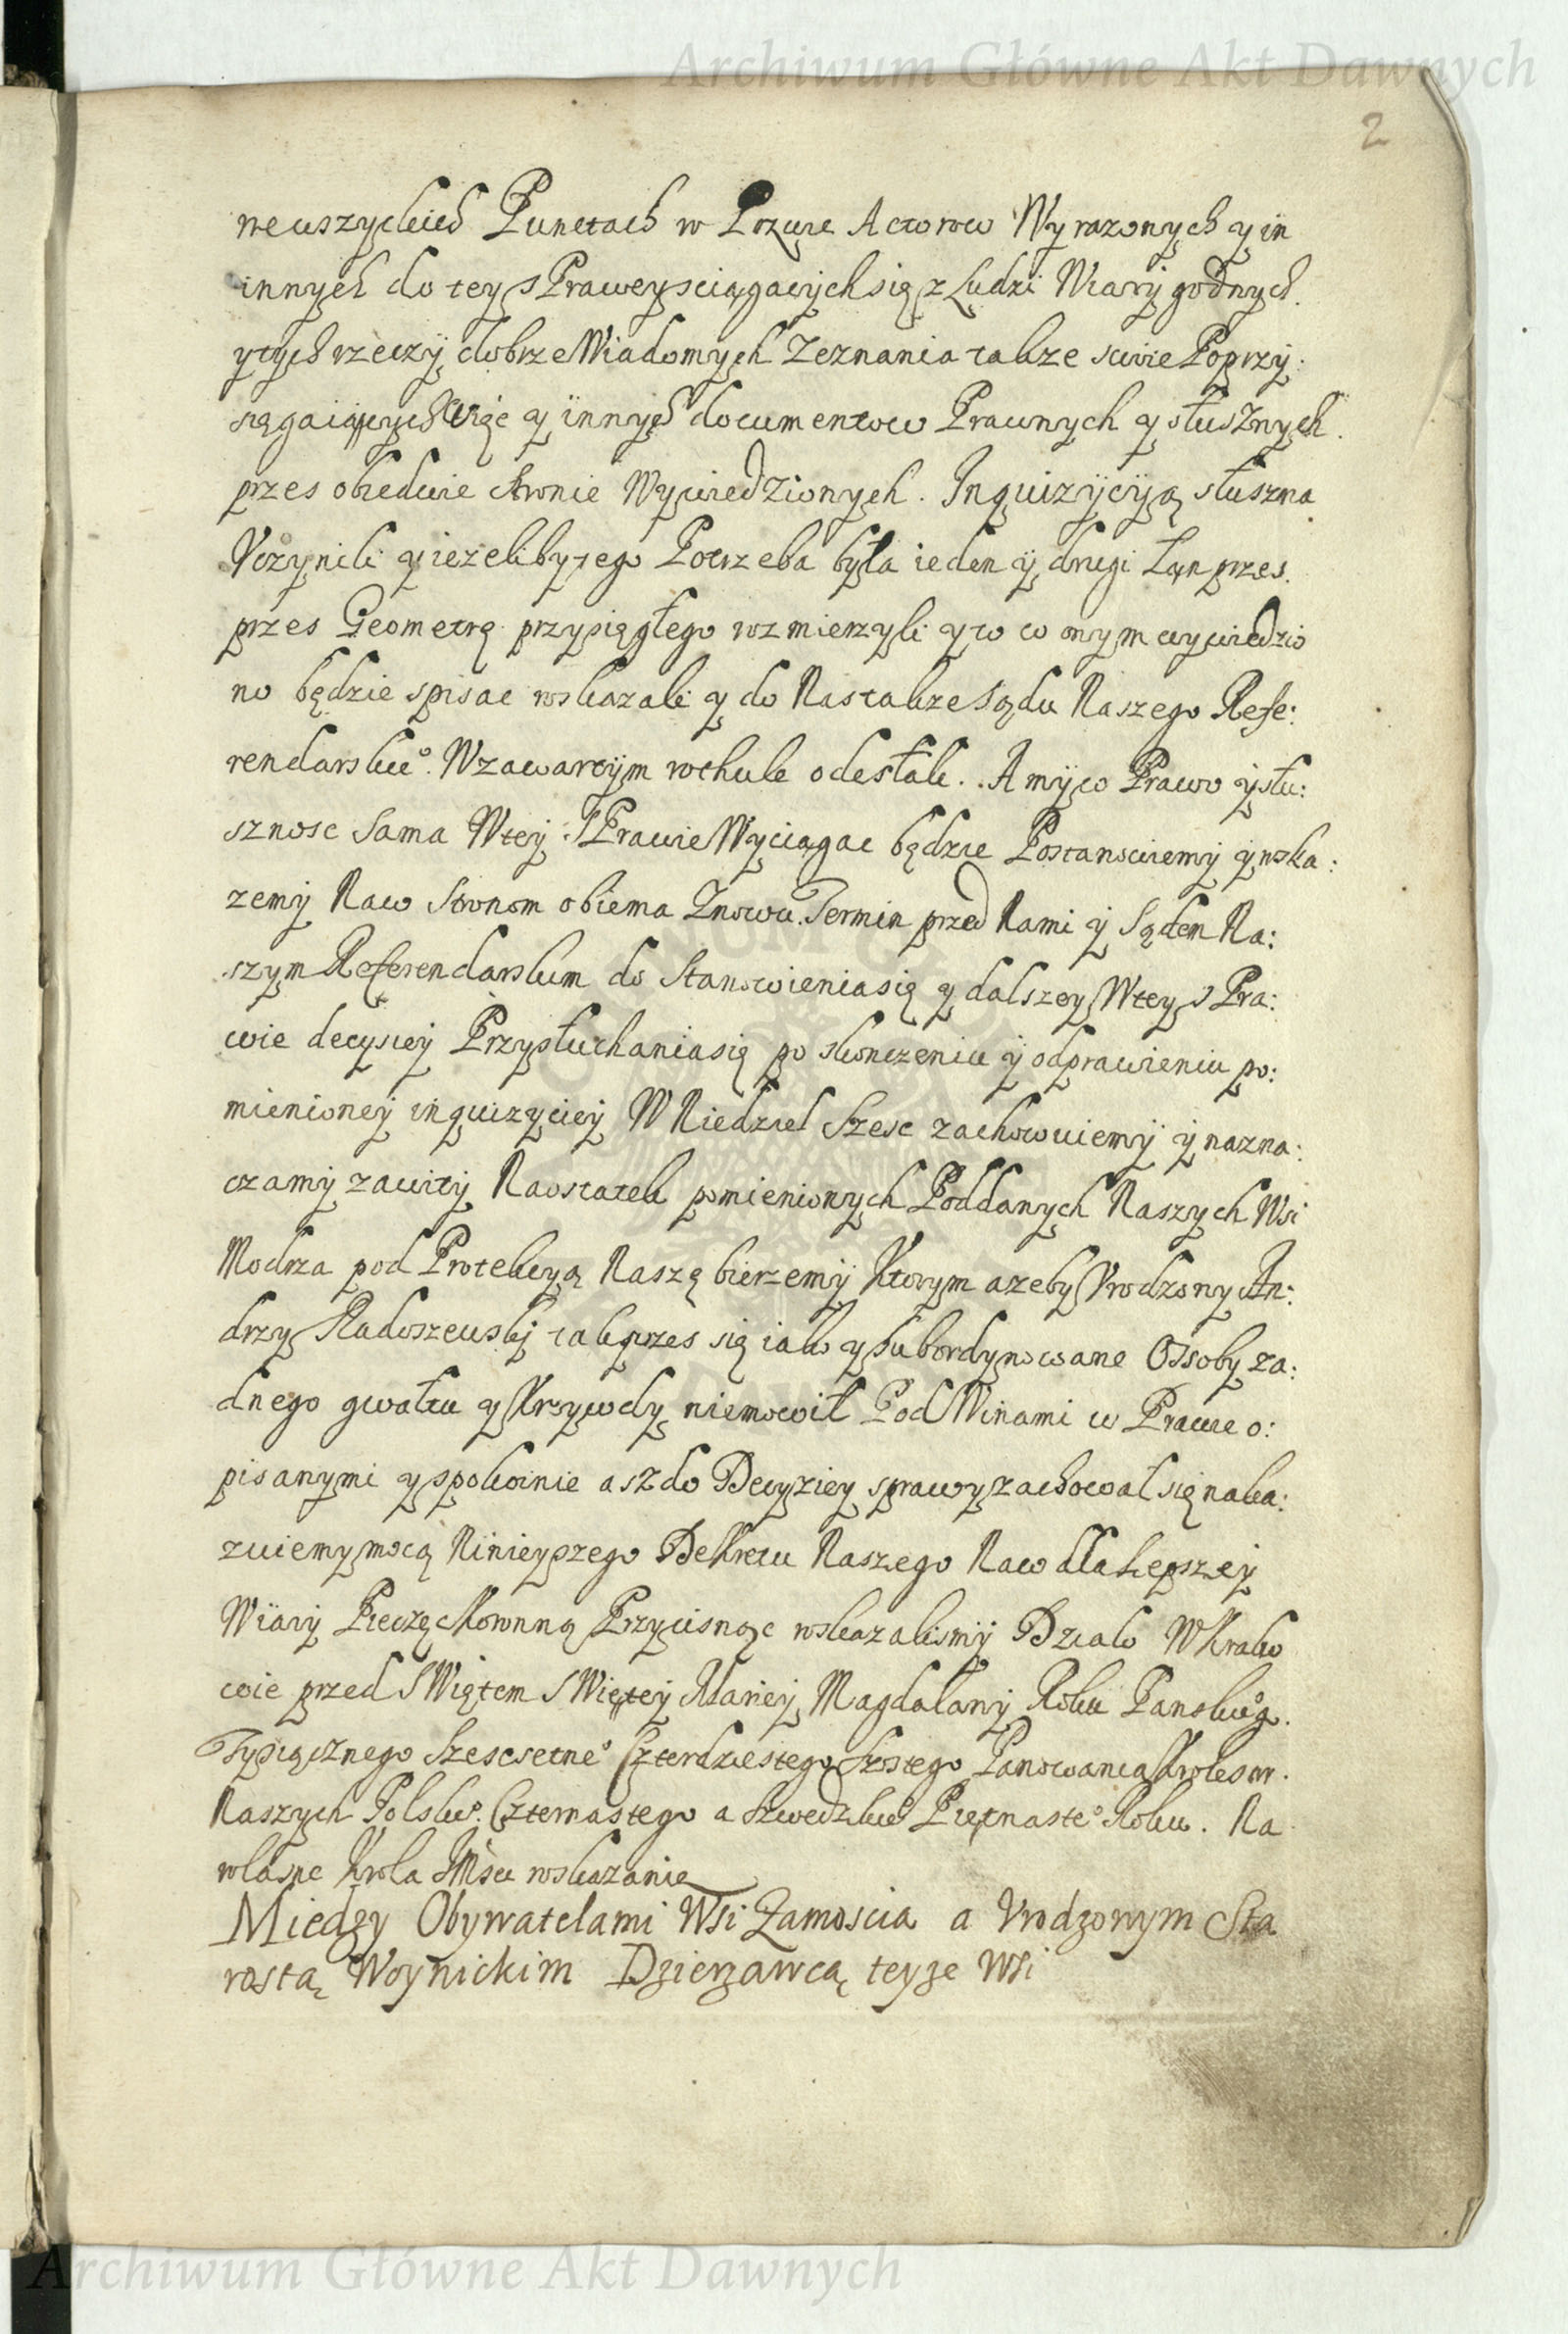 Archiwum Główne Akt Dawnych
2
we wszyckich Punctach w Pozwie Actorow Wyrazonych y in
innych do tey s Prawey sciągaiących się z Ludzi Wiary godnych.
y tych rzeczÿ dobrze Wiadomych Zeznania takze swie Poprzy:
sięgaiących wiąc y innych documentow Prawnych y słusznych.
przes obiedwie stronie Wywiedzionych. Inquizÿcÿą słuszna
Vczynili y iezeliby tego Potrzeba była ieden ÿ drugi Łan przes.
przes Geometrę przysięgłego wzmierzyli y to co w onym wywiedzio
no będzie spisac wskazali y do Nas takze Sądu Naszego Refe:
rendarskieo. W zawartÿm rothule odesłali. A mÿ co Prawo ÿ słu:
sznosc sama W teÿ s Prawie Wyciągac będzie Postanowiemÿ ÿ wska:
zemÿ Naco Stronom obiema Znowu Termin przed Nami ÿ Sądem Na:
szym Referendarskim do Stanowienia się y dalszey W tey s Pra:
wie decysieÿ Przysłuchania się po skonczeniu ÿ odprawieniu po:
mienioneÿ inquizycieÿ W Niedziel szesc zachowuiemÿ ÿ nazna:
czamÿ zawitÿ Naostatek pomienionych Poddanych Naszych Wsi
Modrza pod Protekcyą Naszą bierzemÿ Ktorym azeby Vrodzony An:
drzy Radoszewskÿ tak przes się iako y subordynowane Ossoby za:
dnego gwałtu y Krzywdy nieczynił Pod Winami w Prawie o:
pisanymi y spokoinie asz do Decyziey sprawy zachował się naka:
zuiemy mocą Ninieyszego Dekretu Naszego Naco dla Lepszeÿ
Wiarÿ Pieczęc Koronną Przycisnąc wskazalismÿ Działo W Krako
wie przed SWiętem SWięteÿ Marieÿ Magdalanÿ Roku Panskieog.
Tysiącznego szescsetneo Czterdziestego szostego Panowania Krolestw.
Naszych Polskieo. Czternastego a szwedzkieo Piętnasteo Roku. Na
własne Krola JMsci wskazanie
Miedzy Obywatelami Wsi Zamoscia a Vrodzonym Sta
rostą Woynickim Dzierzawcą teyze Wsi
Archiwum Główne Akt Dawnych